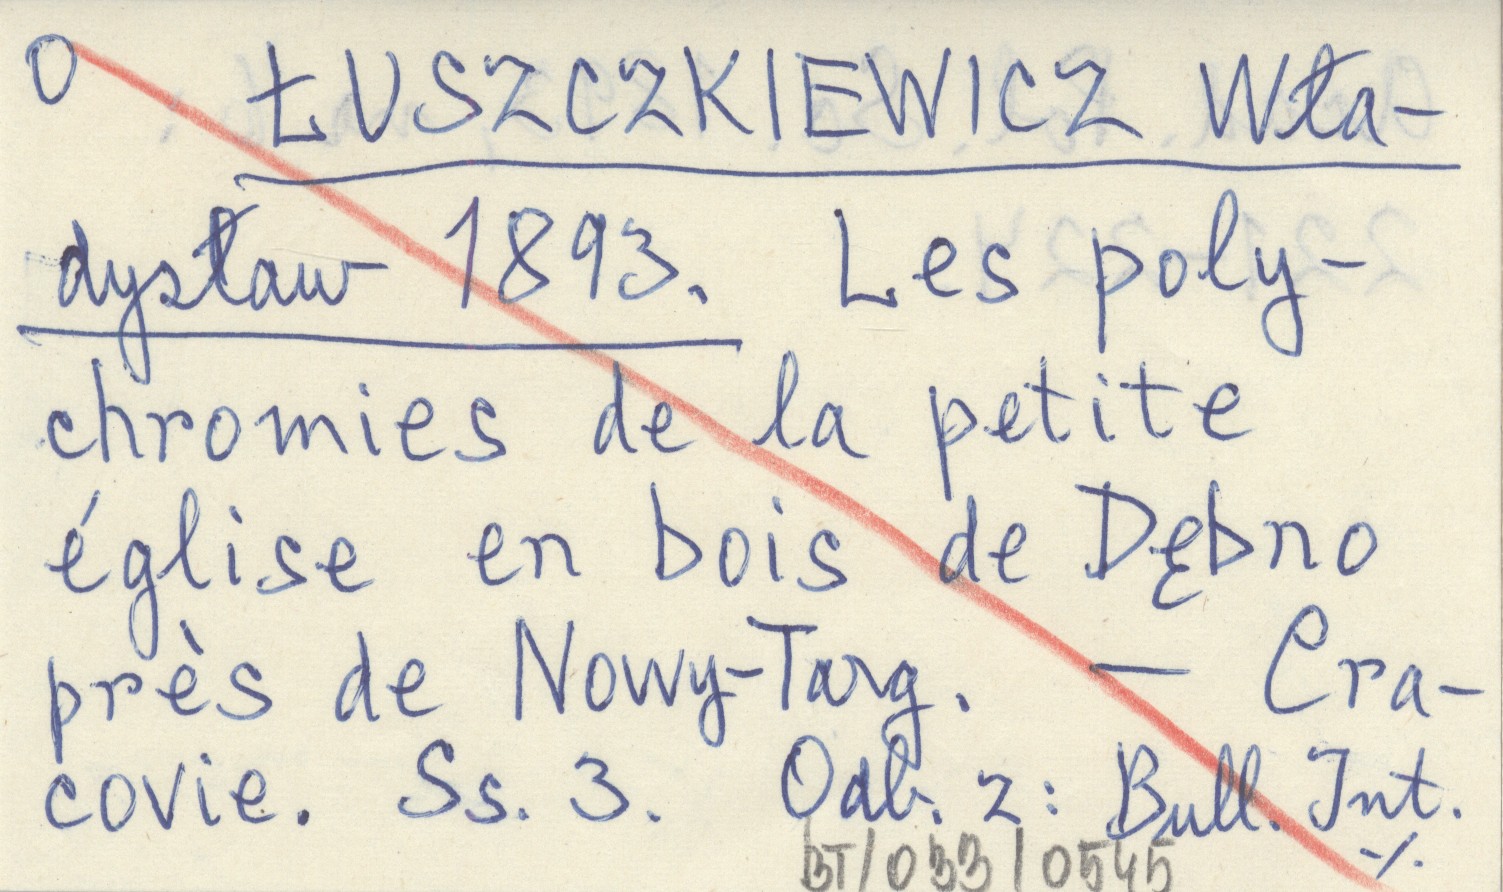 O ŁUSZCZKIEWICZ Wła-
dysław 1893. Les poly-
chromies de la petite
église en bois de Dębno
près de Nowy-Targ. — Cra-
covie. Ss. 3. Odb. z: Bull. Int.
BT/033/0545 ·/.